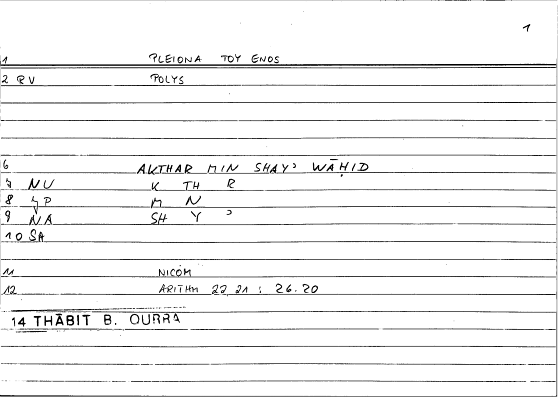 1
1 PLEIONA TOY ENOS
2 RV POLYS
6 AKTHAR MIN SHAYʾ WĀḤID
7 NU K TH R
8 JP M N
9 NA SH Y ʾ
10 SA
11 NICOM
12 ARITHM 22.21 : 26.20
14 THĀBIT B. QURRA